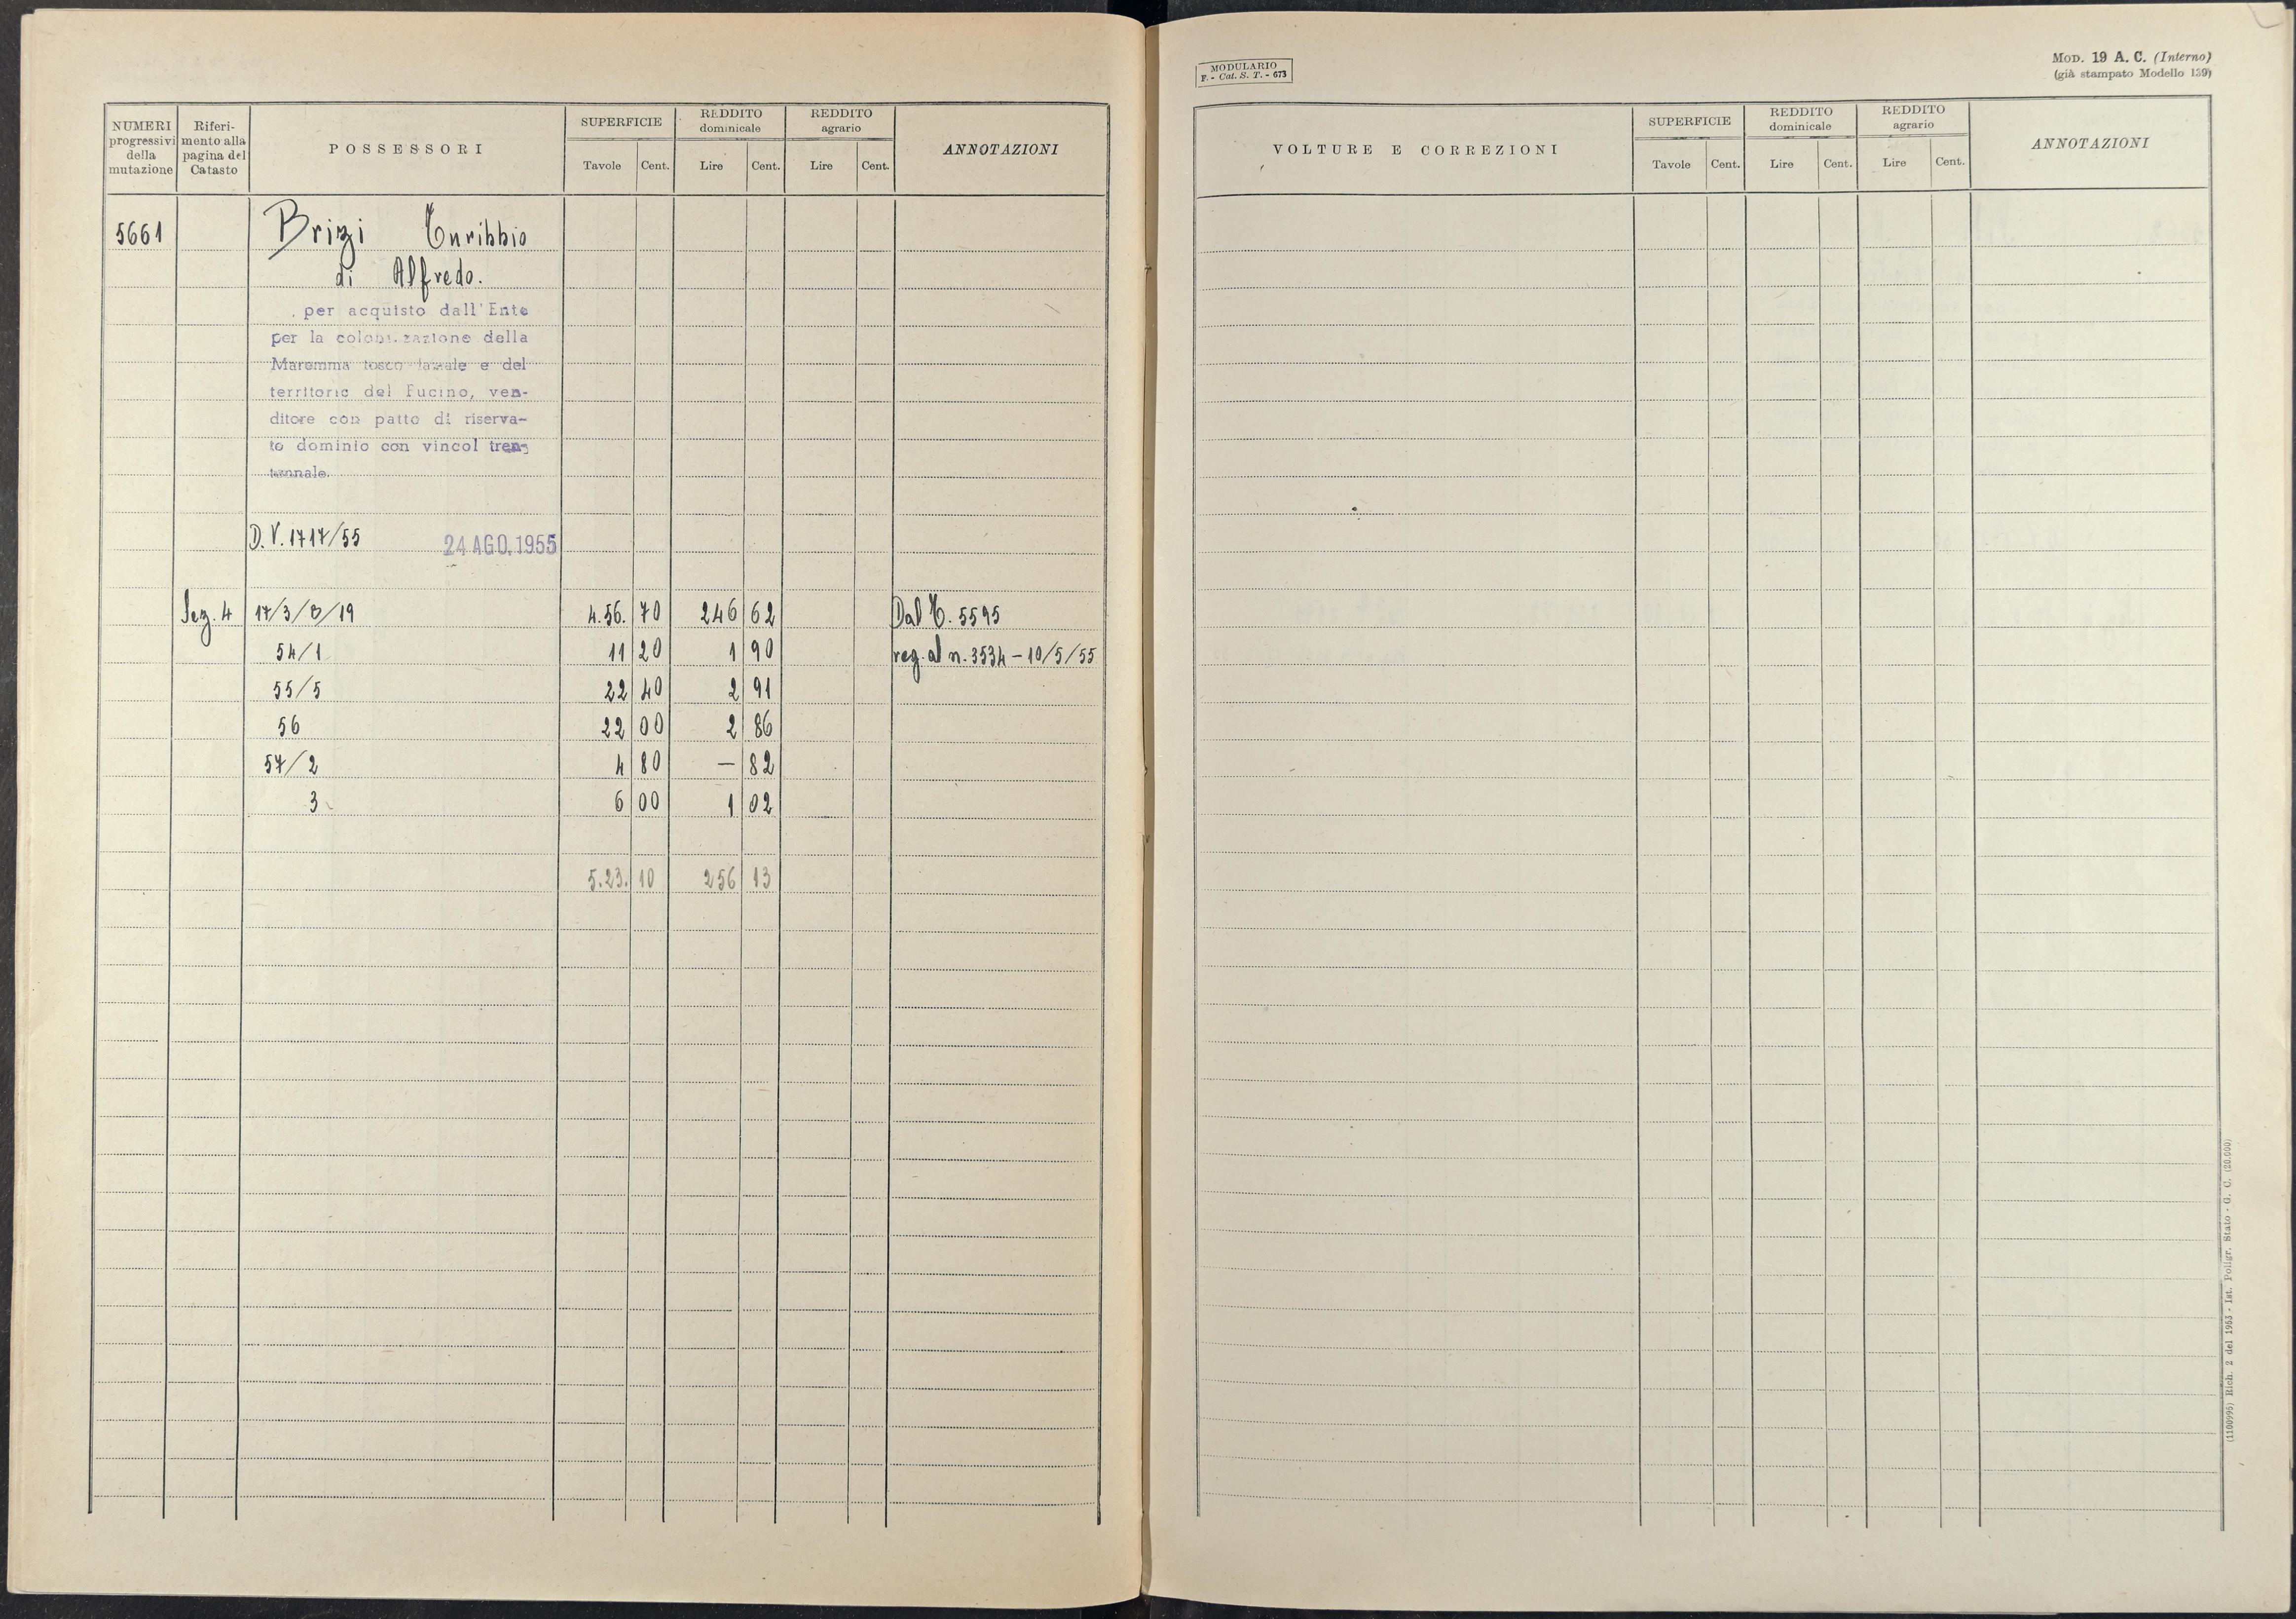 NUMERI progressivi della mutazione
Riferimento alla pagina del Catasto
POSSESSORI
SUPERFICIE
Tavole Cent.
REDDITO dominicale
Lire Cent.
REDDITO agrario
Lire Cent.
ANNOTAZIONI
5661 Brizi Turibbio
di Alfredo.
per acquisto dall'Ente
per la colonizzazione della
Maremma tosco laziale e del
territorio del Fucino, ven-
ditore con patto di riserva-
to dominio con vincol tren-
tennale.
D.V. 1717/55 24 AGO. 1955
Sez. 4 17/3/B/19 4.56. 70 246 62 Dal T. 5595
54/1 11 20 1 90 reg. al n. 3534 - 10/5/55
55/5 22 40 2 91
56 22 00 2 86
57/2 4 80 — 82
3 6 00 1 02
5.23. 10 256 13
MODULARIO
F. - Cat. S. T. - 673
MOD. 19 A. C. (Interno)
(già stampato Modello 139)
VOLTURE E CORREZIONI
SUPERFICIE
Tavole Cent.
REDDITO dominicale
Lire Cent.
REDDITO agrario
Lire Cent.
ANNOTAZIONI
(1100995) Rich. 2 del 1953 - Ist. Poligr. Stato - G. C. (20.000)